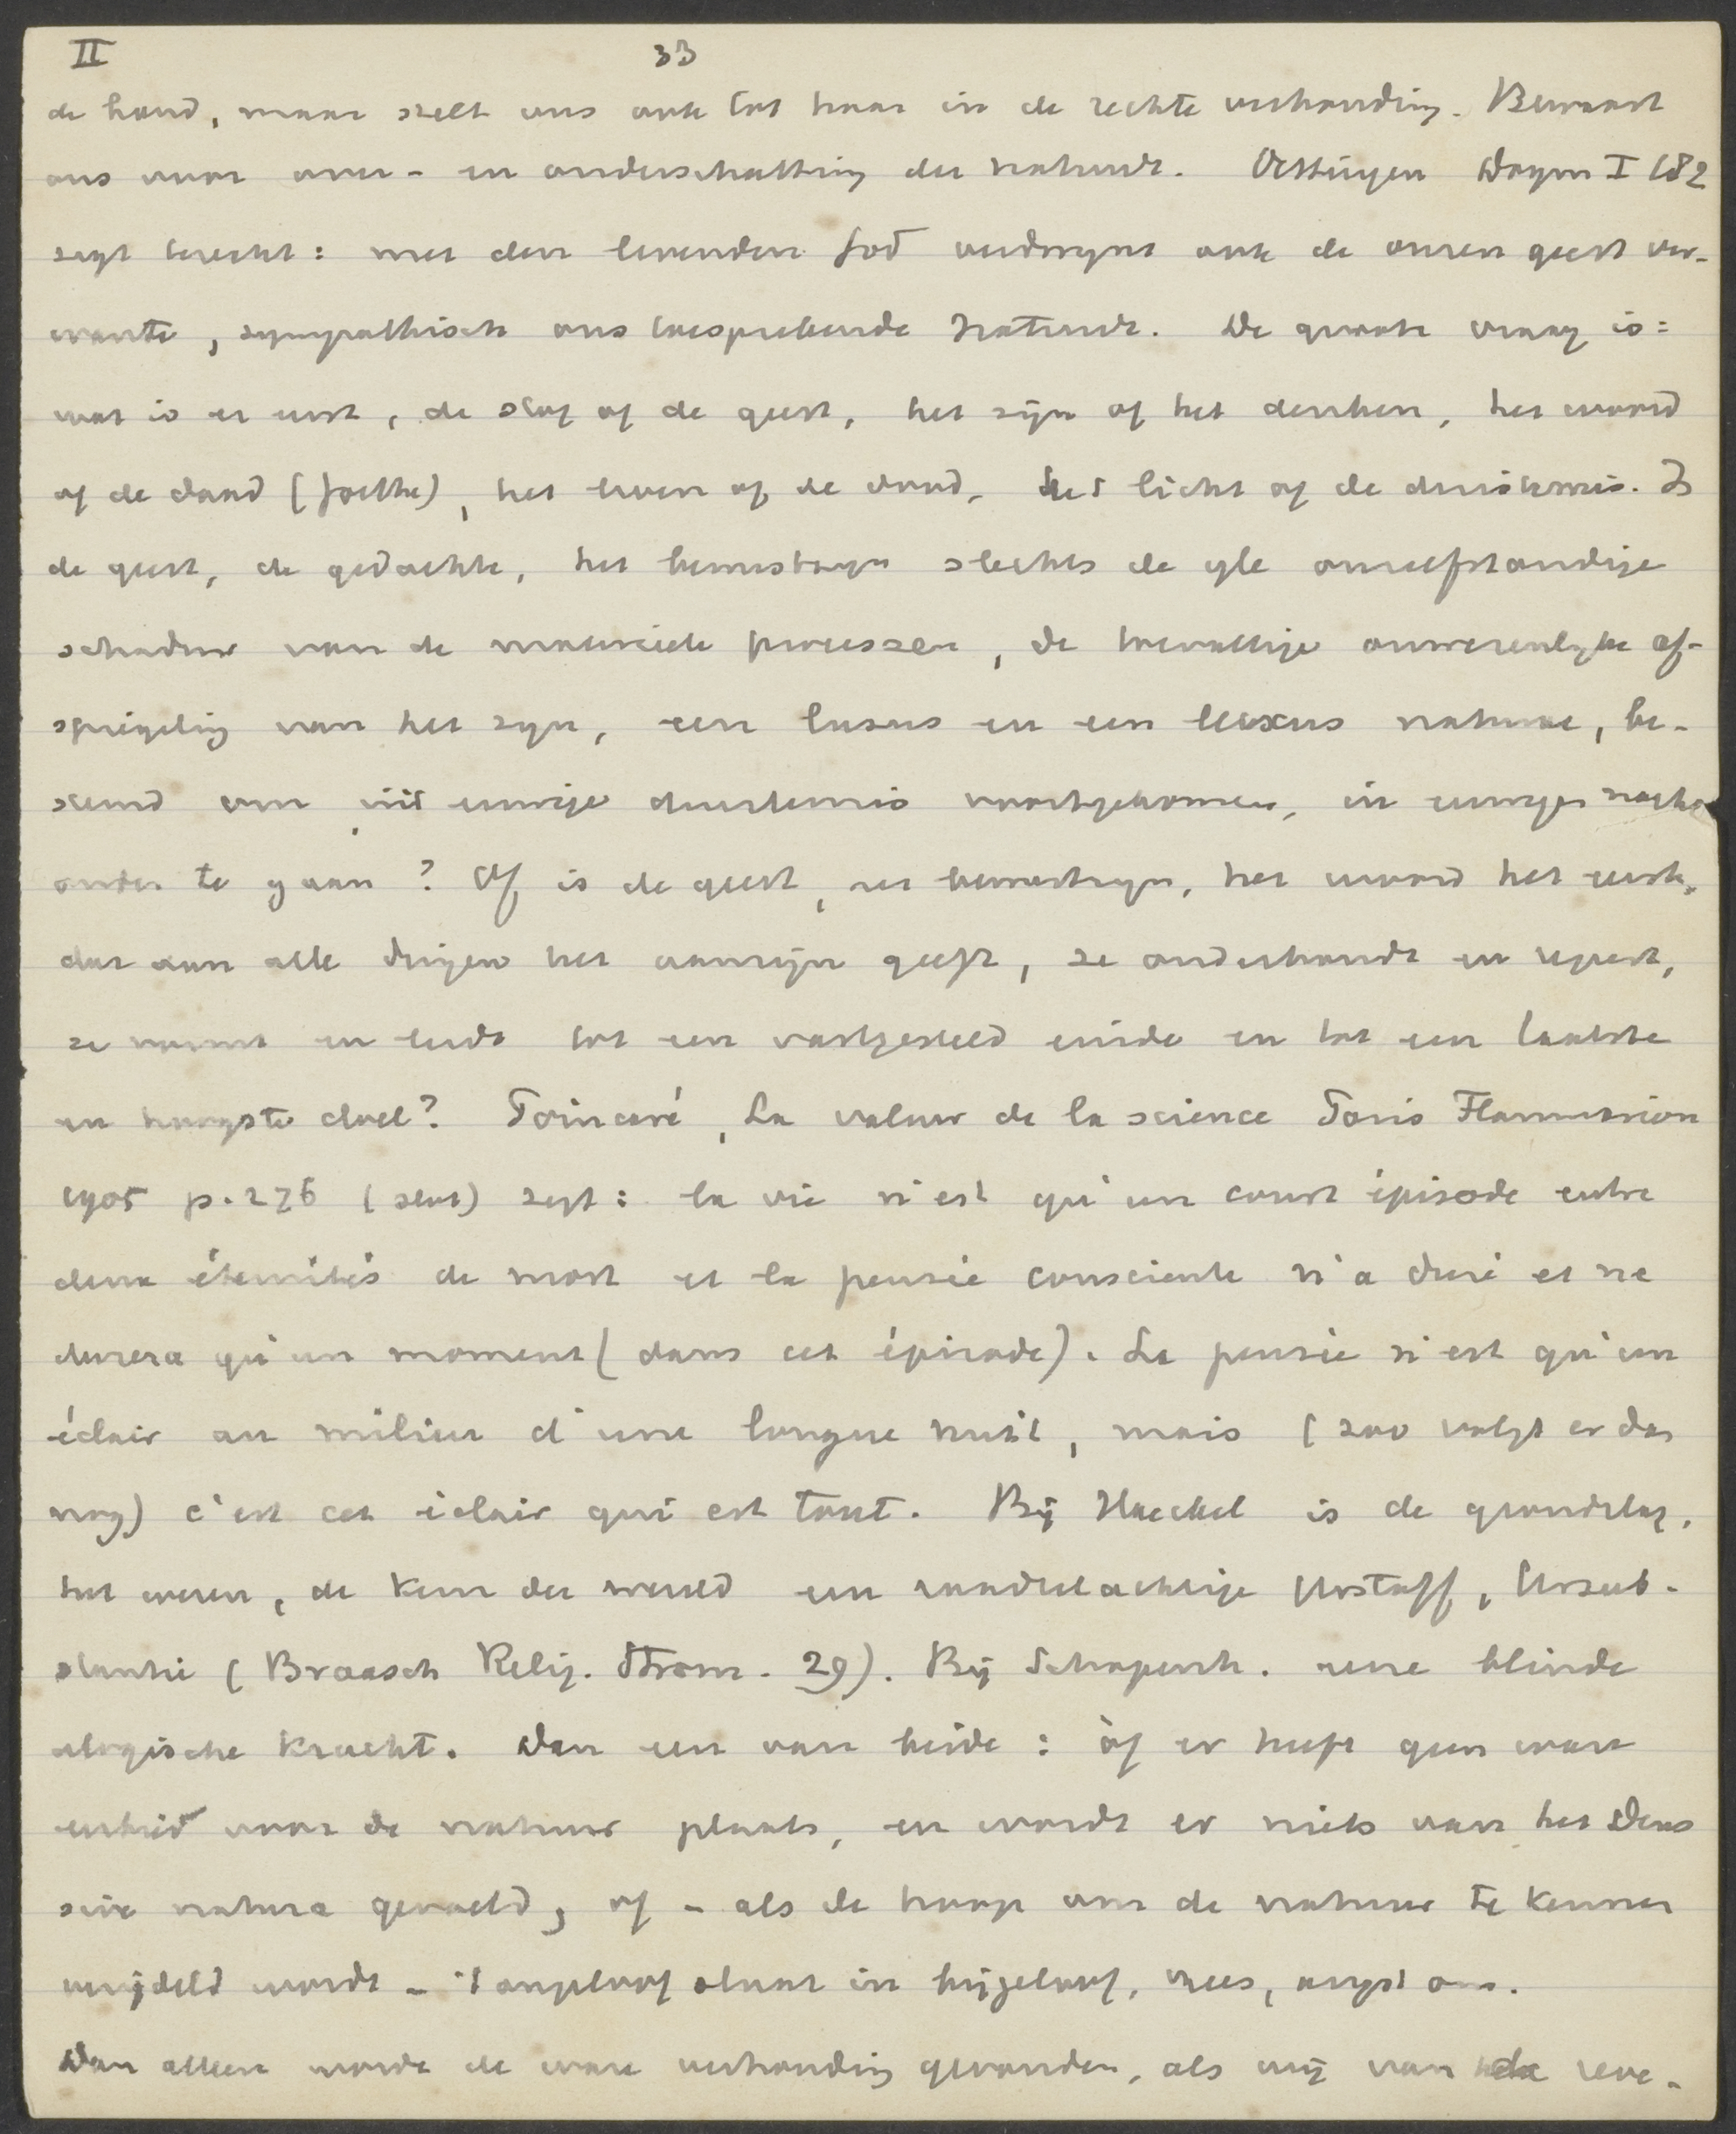 II 33
de hand, maar stelt ons ook tot haar in de rechte verhouding. Bewaart
ons voor over- en onderschatting der natuur. Oettingen Dogm I 182
zegt terecht: met den levenden God verdwynt ook de onzen geest ver-
wante, sympathisch ons toesprekende natuur. De groote vraag is:
wat is er eerst, de stof of de geest, het zijn of het denken, het woord
of de daad (Goethe), het leven of de dood, het licht of de duisternis. Is
de geest, de gedachte, het bewustzyn slechts de yle onzelfstandige
schaduw van de materieele processen, de toevallige onwezenlyke af-
spiegeling van het zyn, een lusus en een luxus naturae, be-
stemd om uit eeuwige duisternis voortgekomen, in eeuwige nacht
onder te gaan? Of is de geest, het bewustzyn, het woord het eerste,
dat aan alle dingen het aanzijn geeft, ze onderhoudt en regeert,
ze vormt en leidt tot een vastgesteld einde en tot een laatste
en hoogste doel? Poincaré, La valeur de la science Paris Flammarion
1905 p. 276 (slot) zegt: la vie n'est qu'un court épisode entre
deux éternités de mort et la pensée consciente n'a duré et ne
durera qu'un moment (dans cet épisode). La pensée n'est qu'un
éclair au milieu d'une longue nuit, mais (zoo volgt er dan
nog) c'est cet éclair qui est tout. Bij Haeckel is de grondslag,
het wezen, de kern der wereld een raadselachtige Urstoff, Ursub-
stantie (Braasch Relig. Strom. 29). Bij Schopenh. eene blinde
alogische kracht. Dan een van beide: òf er heeft geen waar
enheid voor de natuur plaats, en wordt er niets van het Deus
sive natura gevoeld, of - als de hoop om de natuur te kennen
verijdeld wordt - 't ongeloof slaat in bijgeloof, vrees, angst om.
Dan alleen wordt de ware verhouding gevonden, als wij van de reve-